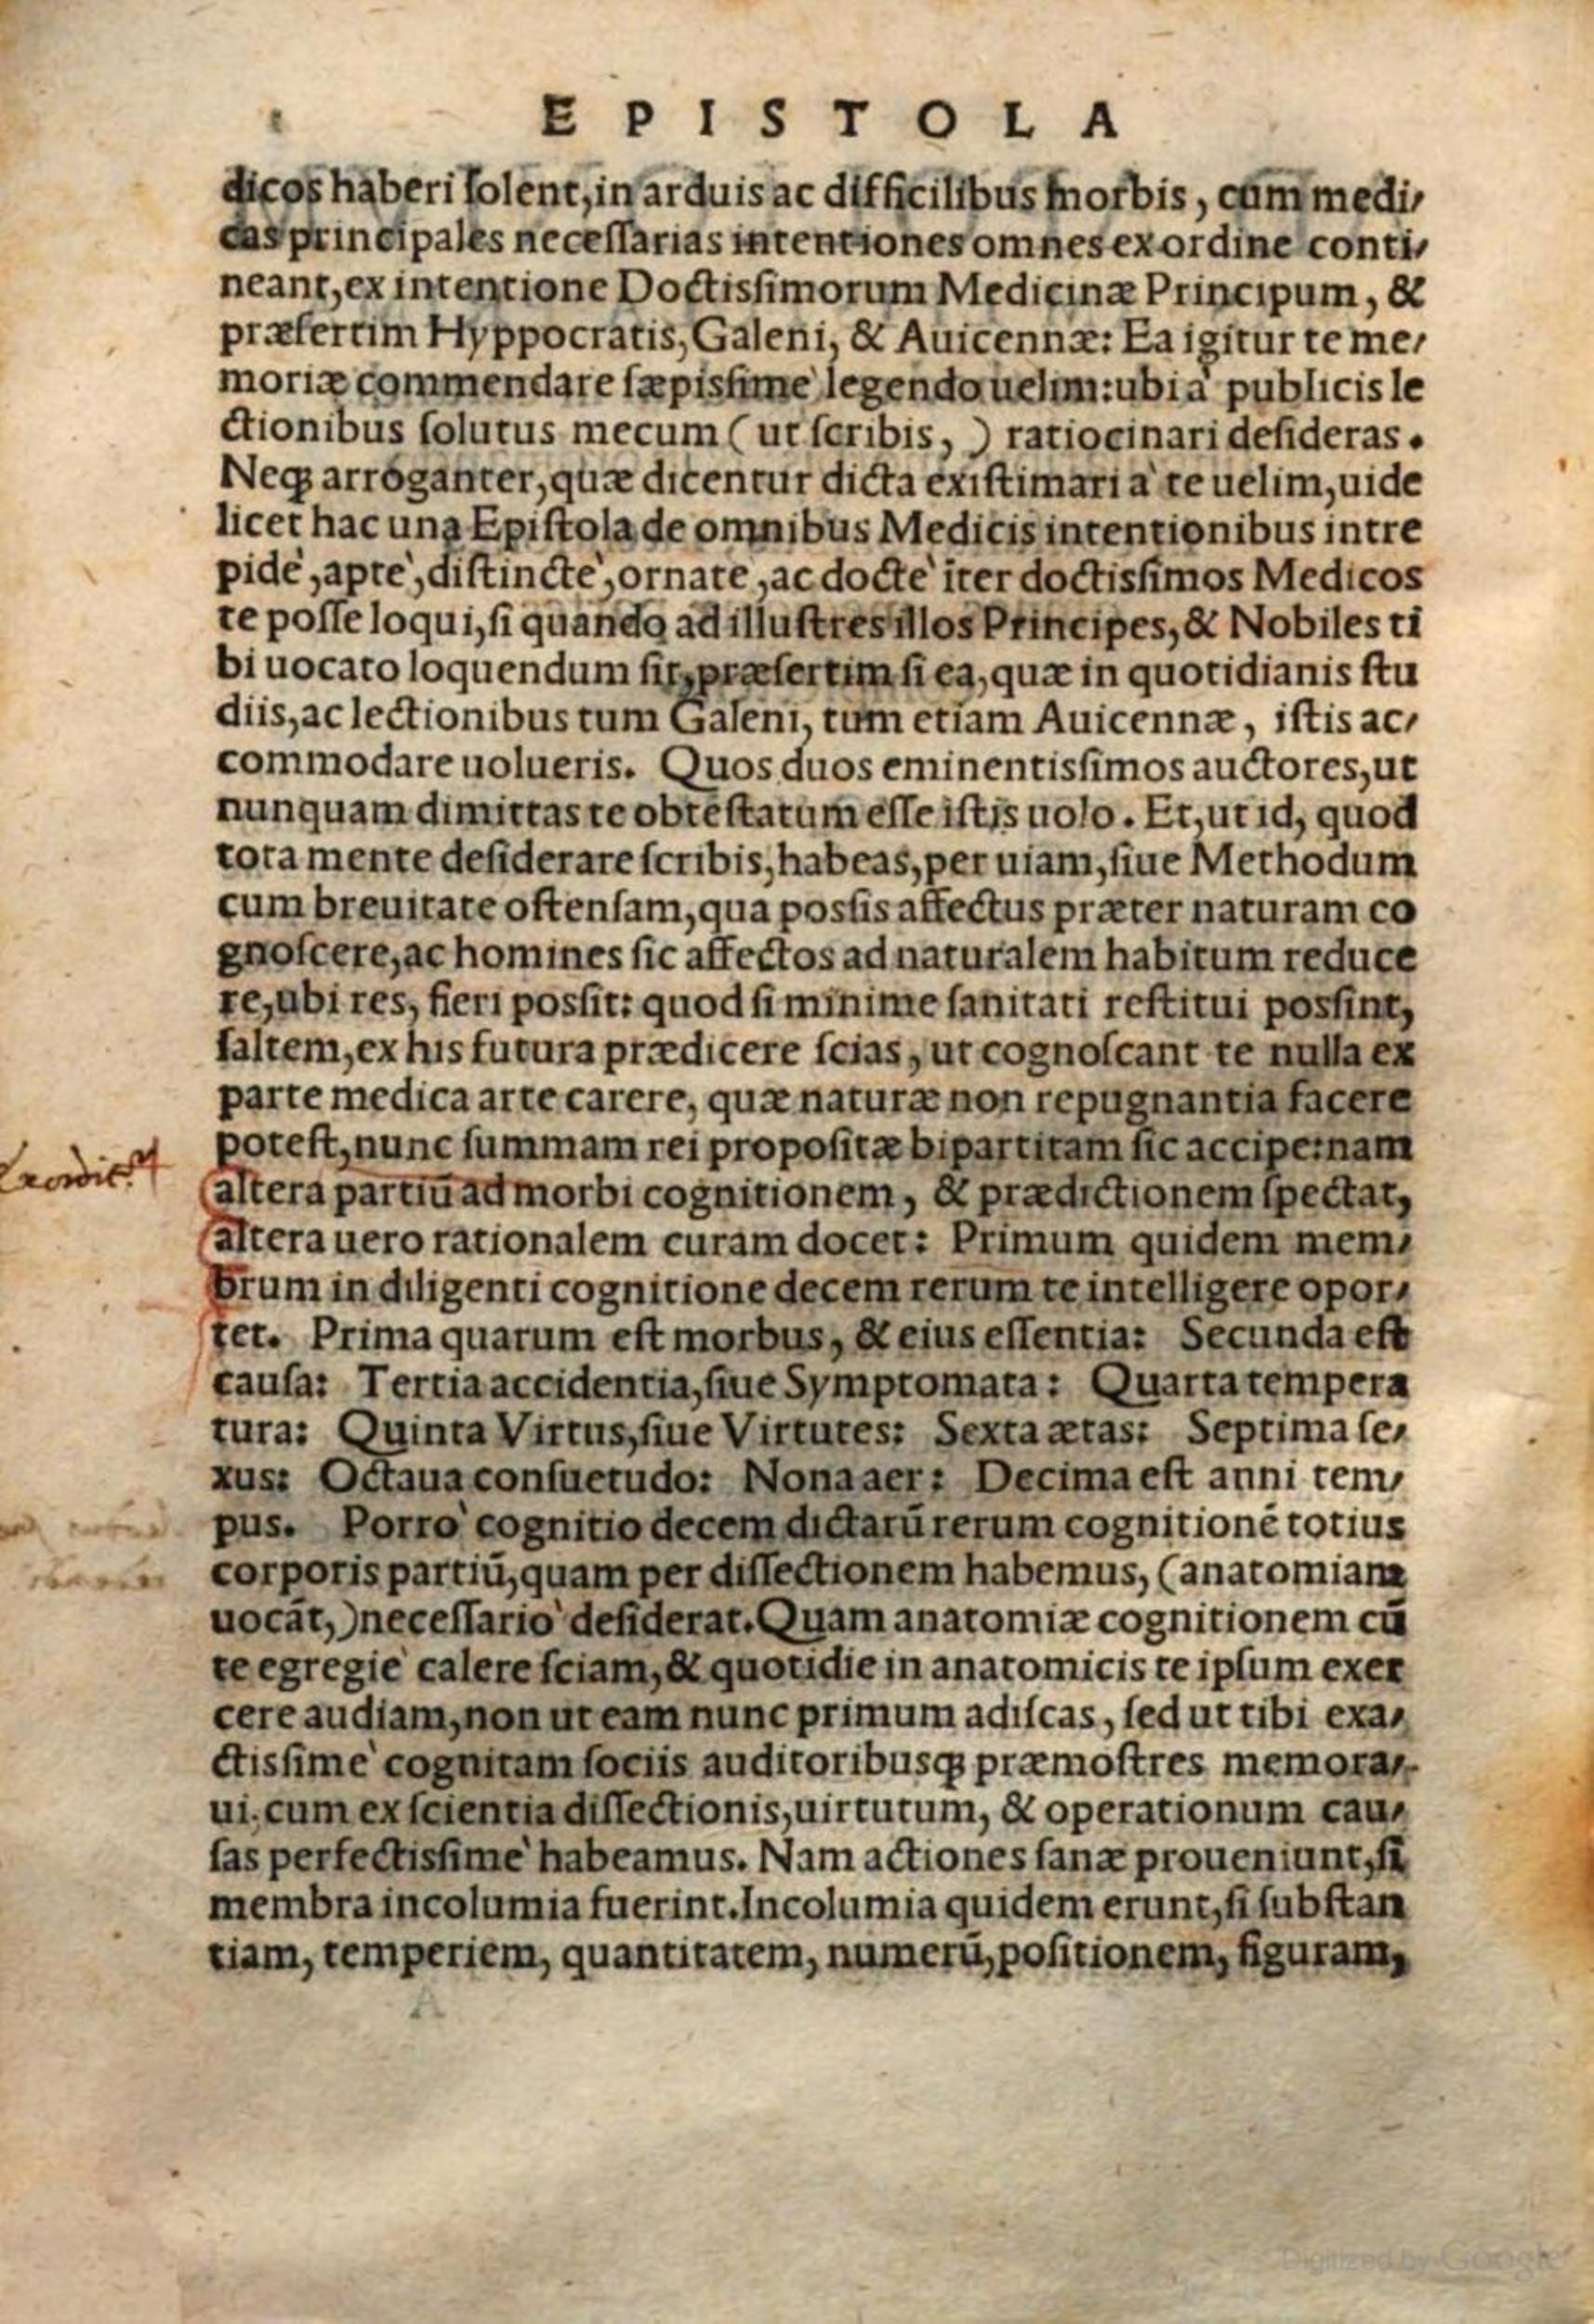 EPISTOLA
dicos haberi ſolent, in arduis ac difficilibus morbis, cum medi-
cas principales neceſſarias intentiones omnes ex ordine conti-
neant, ex intentione Doctisſimorum Medicinæ Principum, &
præſertim Hyppocratis, Galeni, & Auicennæ: Ea igitur te me-
moriæ commendare ſæpisſime` legendo uelim: ubi a` publicis le
ctionibus ſolutus mecum (ut ſcribis, ) ratiocinari deſideras.
Neqꝫ arroganter, quæ dicentur dicta exiſtimari a` te uelim, uide
licet hac una Epiſtola de omnibus Medicis intentionibus intre
pide`, apte`, diſtincte`, ornate, ac docte` īter doctisſimos Medicos
te poſſe loqui, ſi quando ad illuſtres illos Principes, & Nobiles ti
bi uocato loquendum ſit, præſertim ſi ea, quæ in quotidianis ſtu
diis, ac lectionibus tum Galeni, tum etiam Auicennæ, iſtis ac-
commodare uolueris. Quos duos eminentisſimos auctores, ut
nunquam dimittas te obteſtatum eſſe iſtis uolo. Et, ut id, quod
tota mente deſiderare ſcribis, habeas, per uiam, ſiue Methodum
cum breuitate oſtenſam, qua posſis affectus præter naturam co
gnoſcere, ac homines ſic affectos ad naturalem habitum reduce
re, ubi res, fieri posſit: quod ſi minime ſanitati reſtitui posſint,
ſaltem, ex his futura prædicere ſcias, ut cognoſcant te nulla ex
parte medica arte carere, quæ naturæ non repugnantia facere
poteſt, nunc ſummam rei propoſitæ bipartitam ſic accipe: nam
altera partiū ad morbi cognitionem, & prædictionem ſpectat,
altera uero rationalem curam docet: Primum quidem mem-
brum in diligenti cognitione decem rerum te intelligere opor-
tet. Prima quarum eſt morbus, & eius eſſentia: Secunda eſt
cauſa: Tertia accidentia, ſiue Symptomata: Quarta tempera
tura: Quinta Virtus, ſiue Virtutes: Sexta ætas: Septima ſe-
xus: Octaua conſuetudo: Nona aer: Decima eſt anni tem-
pus. Porro` cognitio decem dictarū rerum cognitionē totius
corporis partiū, quam per diſſectionem habemus, (anatomiam
uocāt, ) neceſſario` deſiderat. Quam anatomiæ cognitionem cū
te egregie` calere ſciam, & quotidie in anatomicis te ipſum exer
cere audiam, non ut eam nunc primum adiſcas, ſed ut tibi exa-
ctisſime` cognitam ſociis auditoribusqꝫ præmoſtres memora-
ui. cum ex ſcientia diſſectionis, uirtutum, & operationum cau-
ſas perfectisſime` habeamus. Nam actiones ſanæ proueniunt, ſi
membra incolumia fuerint. Incolumia quidem erunt, ſi ſubſtan
tiam, temperiem, quantitatem, numerū, poſitionem, figuram,
Digitized by Google